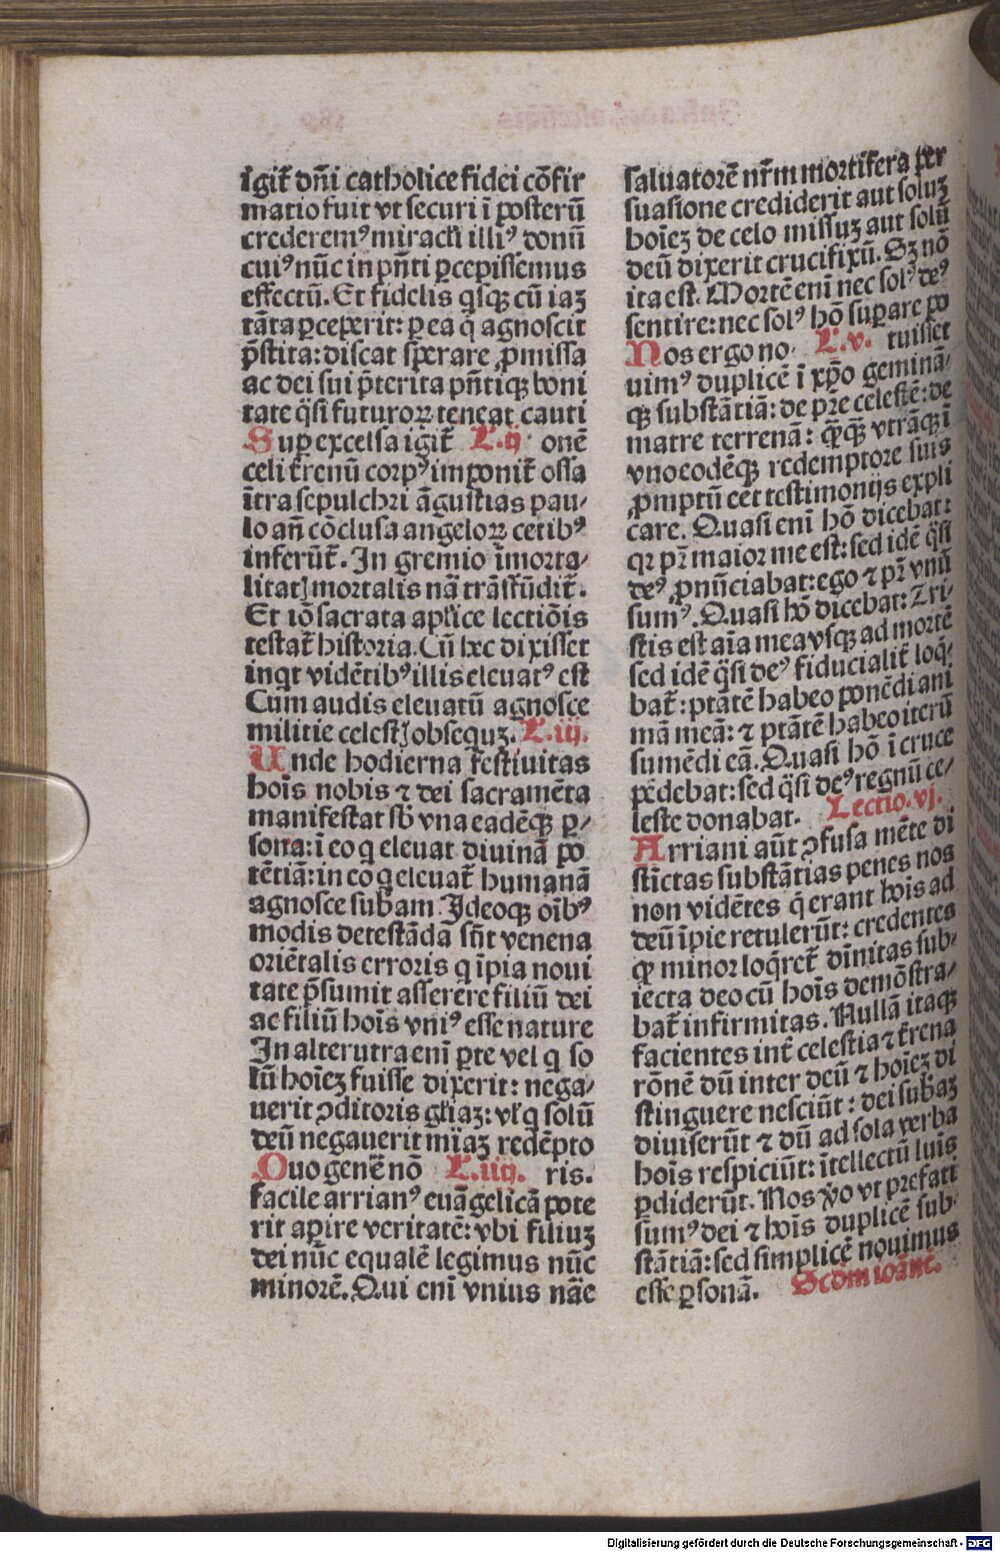 igit᷑ dn̄i catholice fidei cōfir
matio fuit vt securi ī posterū
crederemꝰ miracl̄i illiꝰ donū
cuiꝰ nūc in pn̄ti ꝑcepissemus
effectū. Et fidelis qͥsqꝫ cū iaꝫ
tāta ꝑceperit: ꝑ ea q̄ agnoscit
p̄stita: discat sperare ꝓmissa
ac dei sui p̄terita pn̄tiqꝫ boni
tate q̈si futuroꝝ teneat cauti
Suꝑ excelsa igit᷑ L.ij onē
celi t᷑renū corpꝰ imponit᷑ ossa
ītra sepulchri āgustias pau-
lo an̄ cōclusa angeloꝝ cetibꝰ
inferūt᷑. In gremio īmorta-
litatꝭ mortalis nā trāsfūdit᷑.
Et iō sacrata apl̄ice lectiōis
testat᷑ historia. Cū hec dixisset
inqt vidētibꝰ illis eleuatꝰ est
Cum audis eleuatū agnosce
militie celestꝭ obsequꝫ. L.iij.
Unde hodierna festiuitas
hoīs nobis ⁊ dei sacramēta
manifestat sb̄ vna eadēqꝫ ꝑ-
sona: ī eo q eleuat diuinā po
tētiā: in eo q eleuat᷑ humanā
agnosce subam. Ideoqꝫ oībꝰ
modis detestāda sūt venena
oriētalis erroris q īpia noui
tate p̄sumit asserere filiū dei
ac filiū hoīs vniꝰ esse nature
In alterutra enī ꝑte vel q so
lū hoīeꝫ fuisse dixerit: nega-
uerit ꝯditoris gl̄iaꝫ: vl̓ q solū
deū negauerit mīaꝫ redēpto
Quo genēe nō L.iiij. ris.
facile arrianꝰ euāgelicā pote
rit aperire veritatē: vbi filiuꝫ
dei nūc equalē legimus nūc
minorē. Qui enī vnius nāe
saluatorē nr̄m mortifera per
suasione crediderit aut soluꝫ
hoīeꝫ de celo missuꝫ aut solū
deū dixerit crucifixū. Sꝫ nō
ita est. Mortē enī nec solꝰ deꝰ
sentire: nec solꝰ hō suꝑare po
Nos ergo no- L.v. tuisset
uimꝰ duplicē ī xp̄o geminā-
qꝫ substātiā: de pr̄e celestē: de
matre terrenā: qͣꝫqꝫ vtrāqꝫ ī
vno eodēqꝫ redemptore suis
ꝓmptū eēt testimonijs expli
care. Quasi enī hō dicebat:
qr pr̄ maior me est: sed idē q̈si
deꝰ ꝓnūciabat: ego ⁊ pr̄ vnū
sumꝰ. Quasi hō dicebat: Tri-
stis est aīa mea vsqꝫ ad mortē
sed idē q̈si deꝰ fiducialit᷑ loq̄-
bat᷑: ptātē habeo ponēdi ani
mā meā: ⁊ ptātē habeo iterū
sumēdi eā. Quasi hō ī cruce
pēdebat: sed q̈si deꝰ regnū ce-
leste donabat. Lectio.vj.
Arriani aūt ꝯfusa mēte di
stīctas substātias penes nos
non vidētes q̄ erant hoīs ad
deū īpie retulerūt: credentes
qꝫ minor loq̄ret᷑ diuītas sub-
iecta deo cū hoīs demōstra-
bat᷑ infirmitas. Nullā itaqꝫ
facientes int᷑ celestia ⁊ t᷑rena
rōnē dū inter deū ⁊ hoīeꝫ di
stinguere nesciūt: dei subaꝫ
diuiserūt ⁊ dū ad sola verba
hoīs respiciūt: ītellectū luīs
ꝑdiderūt. Nos v̄o vt prefati
sumꝰ dei ⁊ hoīs duplicē sub-
stātiā: sed simplicē nouimus
esse ꝑsonā. Scd̄m ioānē.
Digitalisierung gefördert durch die Deutsche Forschungsgemeinschaft - DFG